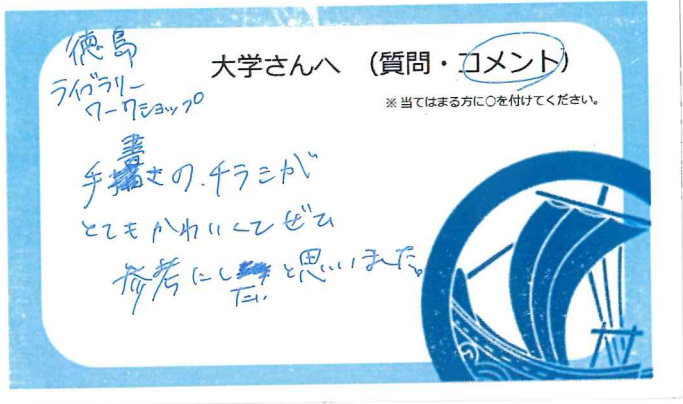 徳島
ライブラリー
ワークショップ
大学さんへ （質問・コメント）
※当てはまる方に○を付けてください。
手書きの、チラシが
とてもかわいくてぜひ
参考にしたい と思いました。